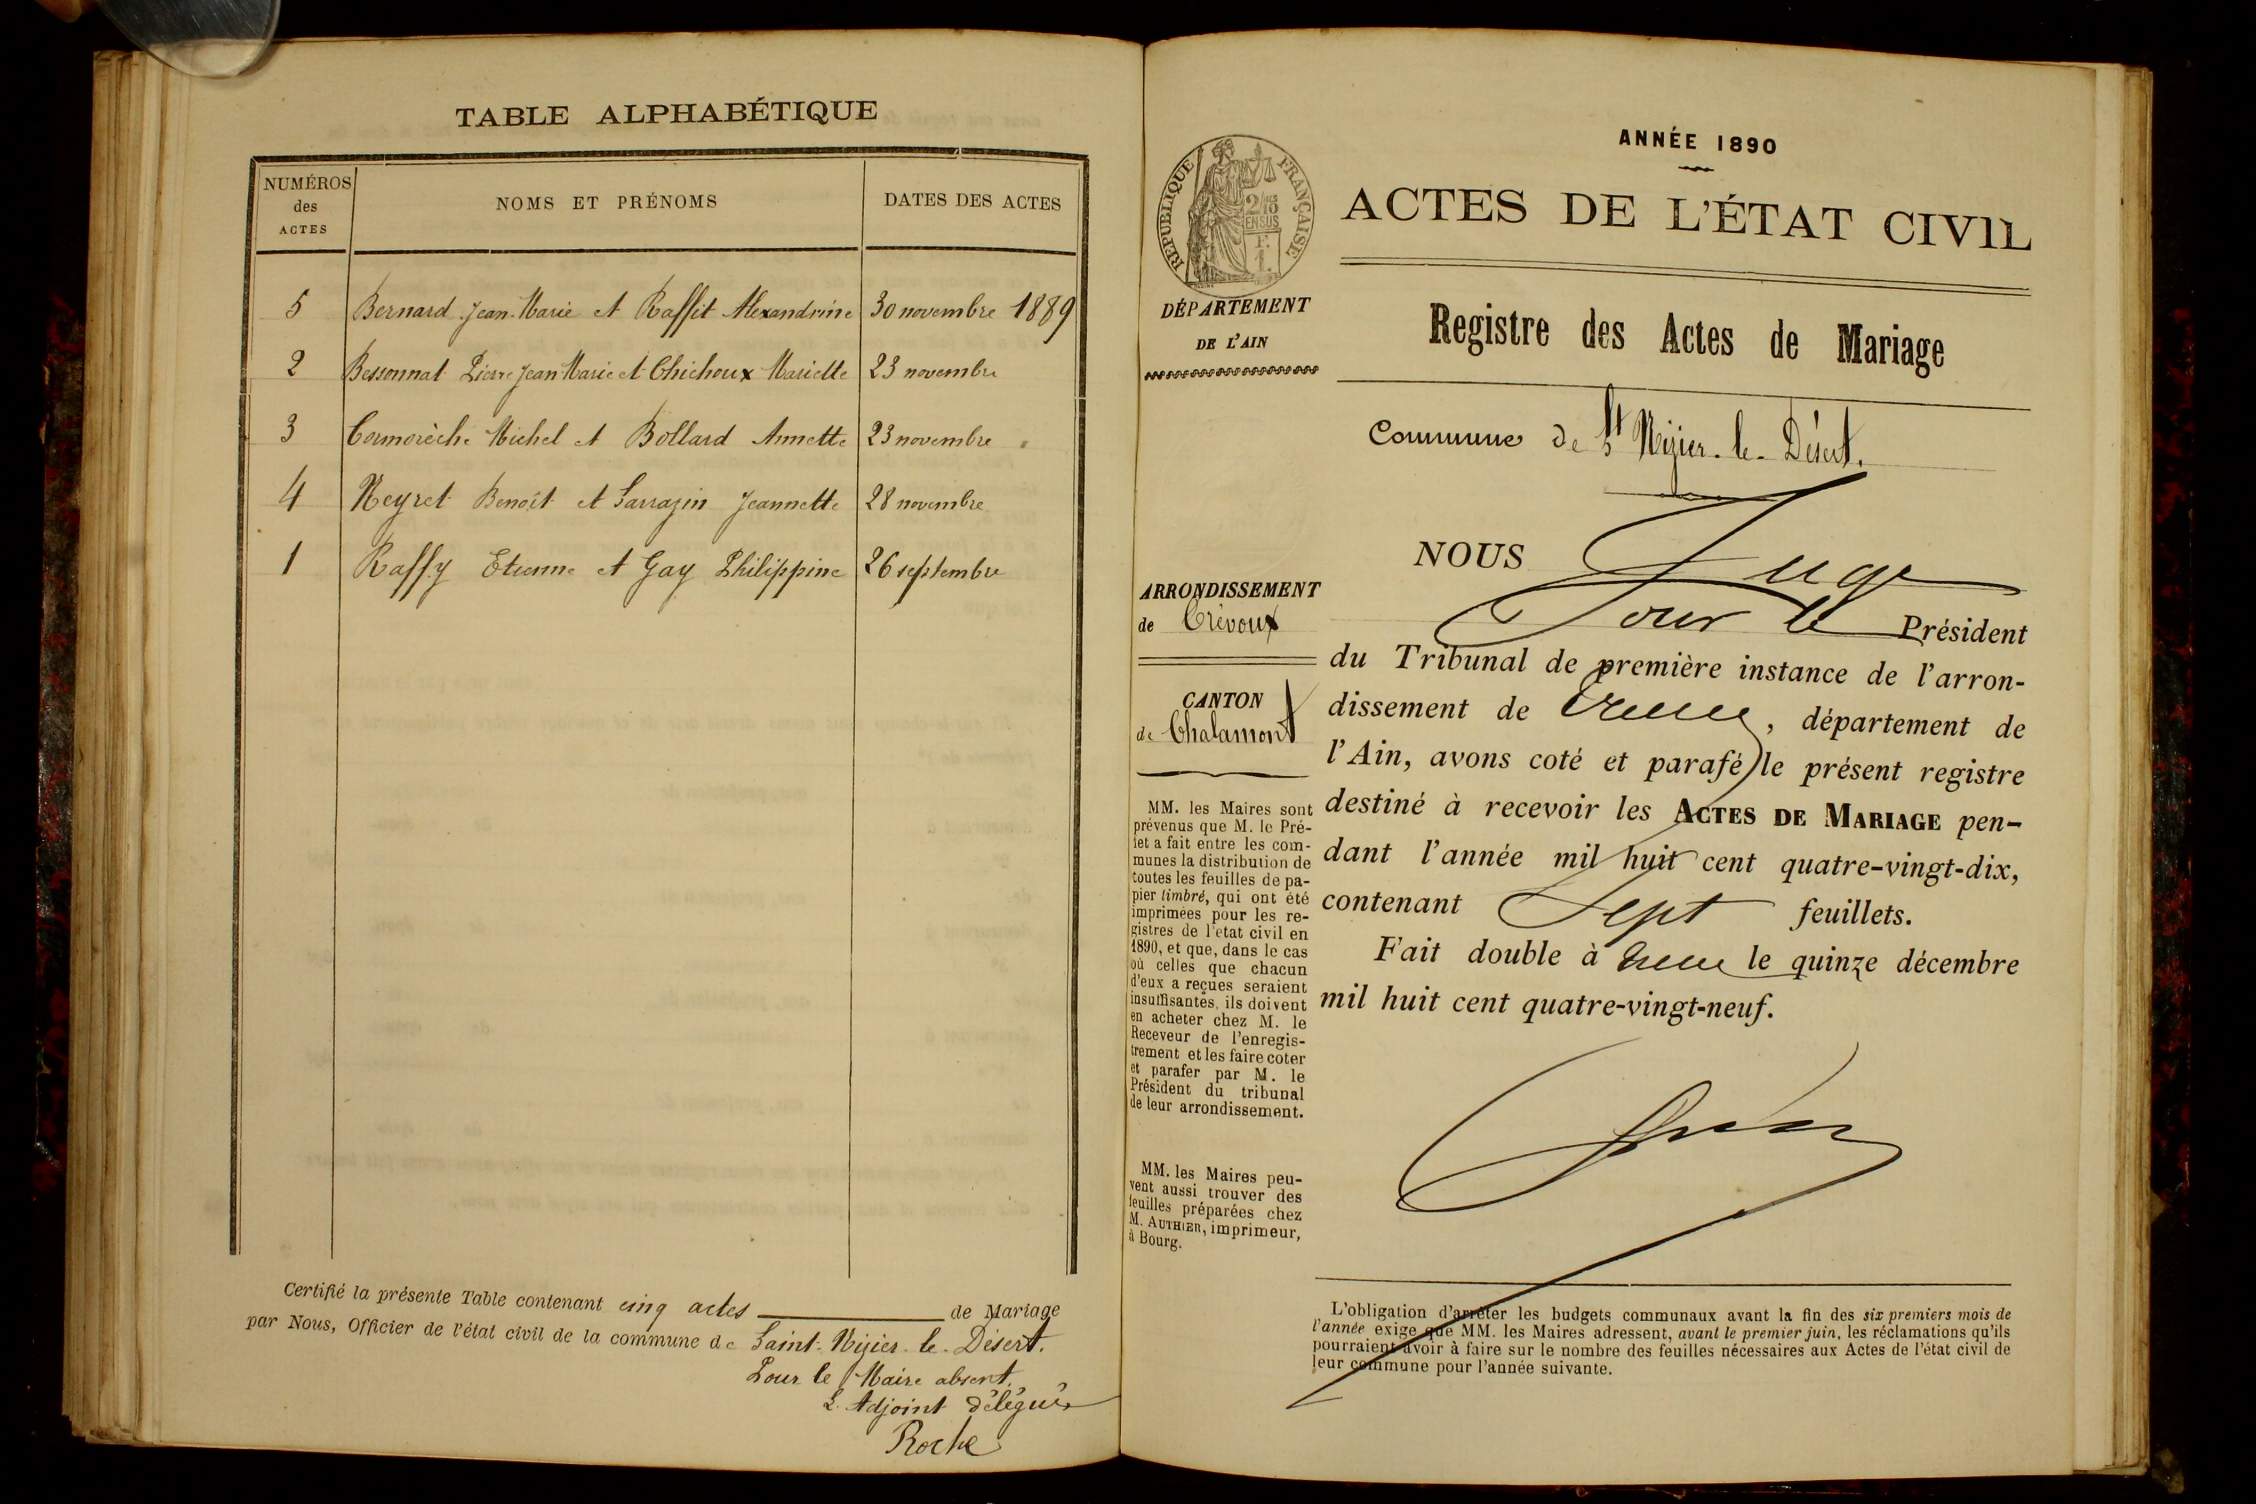 TABLE ALPHABÉTIQUE
NUMÉROS
des
ACTES
NOMS ET PRÉNOMS
DATES DES ACTES
5 Bernard Jean-Marie et Raffit Alexandrine 30 novembre 1889
2 Bessonnat Pierre Jean Marie et Chichoux Mariette 23 novembre
3 Cormorèche Michel et Bollard Annette 23 novembre
4 Neyret Benoît et Sarrazin Jeannette 28 novembre
1 Raffy Etienne et Gay Philippine 26 septembre
Certifié la présente Table contenant cinq actes de Mariage
par Nous, Officier de l'état civil de la commune de Saint-Nizier-le-Désert.
Pour le Maire absent
L'Adjoint délégué
Roche
RÉPUBLIQUE FRANÇAISE
2/10
EN SUS
F.
1.
DÉPARTEMENT
DE L'AIN
ARRONDISSEMENT
de Trévoux
CANTON
de Chalamont
MM. les Maires sont
prévenus que M. le Pré-
fet a fait entre les com-
munes la distribution de
toutes les feuilles de pa-
pier timbré, qui ont été
imprimées pour les re-
gistres de l'état civil en
1890, et que, dans le cas
où celles que chacun
d'eux a reçues seraient
insuffisantes, ils doivent
en acheter chez M. le
Receveur de l'enregis-
trement et les faire coter
et parafer par M. le
Président du tribunal
de leur arrondissement.
MM. les Maires peu-
vent aussi trouver des
feuilles préparées chez
M. AUTHIER, imprimeur,
à Bourg.
ANNÉE 1890
ACTES DE L'ÉTAT CIVIL
Registre des Actes de Mariage
Commune de St Nizier-le-Désert.
NOUS Juge
Pour le Président
du Tribunal de première instance de l'arron-
dissement de Trévoux, département de
l'Ain, avons coté et parafé le présent registre
destiné à recevoir les ACTES DE MARIAGE pen-
dant l'année mil huit cent quatre-vingt-dix,
contenant Sept feuillets.
Fait double à Trévoux le quinze décembre
mil huit cent quatre-vingt-neuf.
L'obligation d'arrêter les budgets communaux avant la fin des six premiers mois de
l'année exige que MM. les Maires adressent, avant le premier juin, les réclamations qu'ils
pourraient avoir à faire sur le nombre des feuilles nécessaires aux Actes de l'état civil de
leur commune pour l'année suivante.